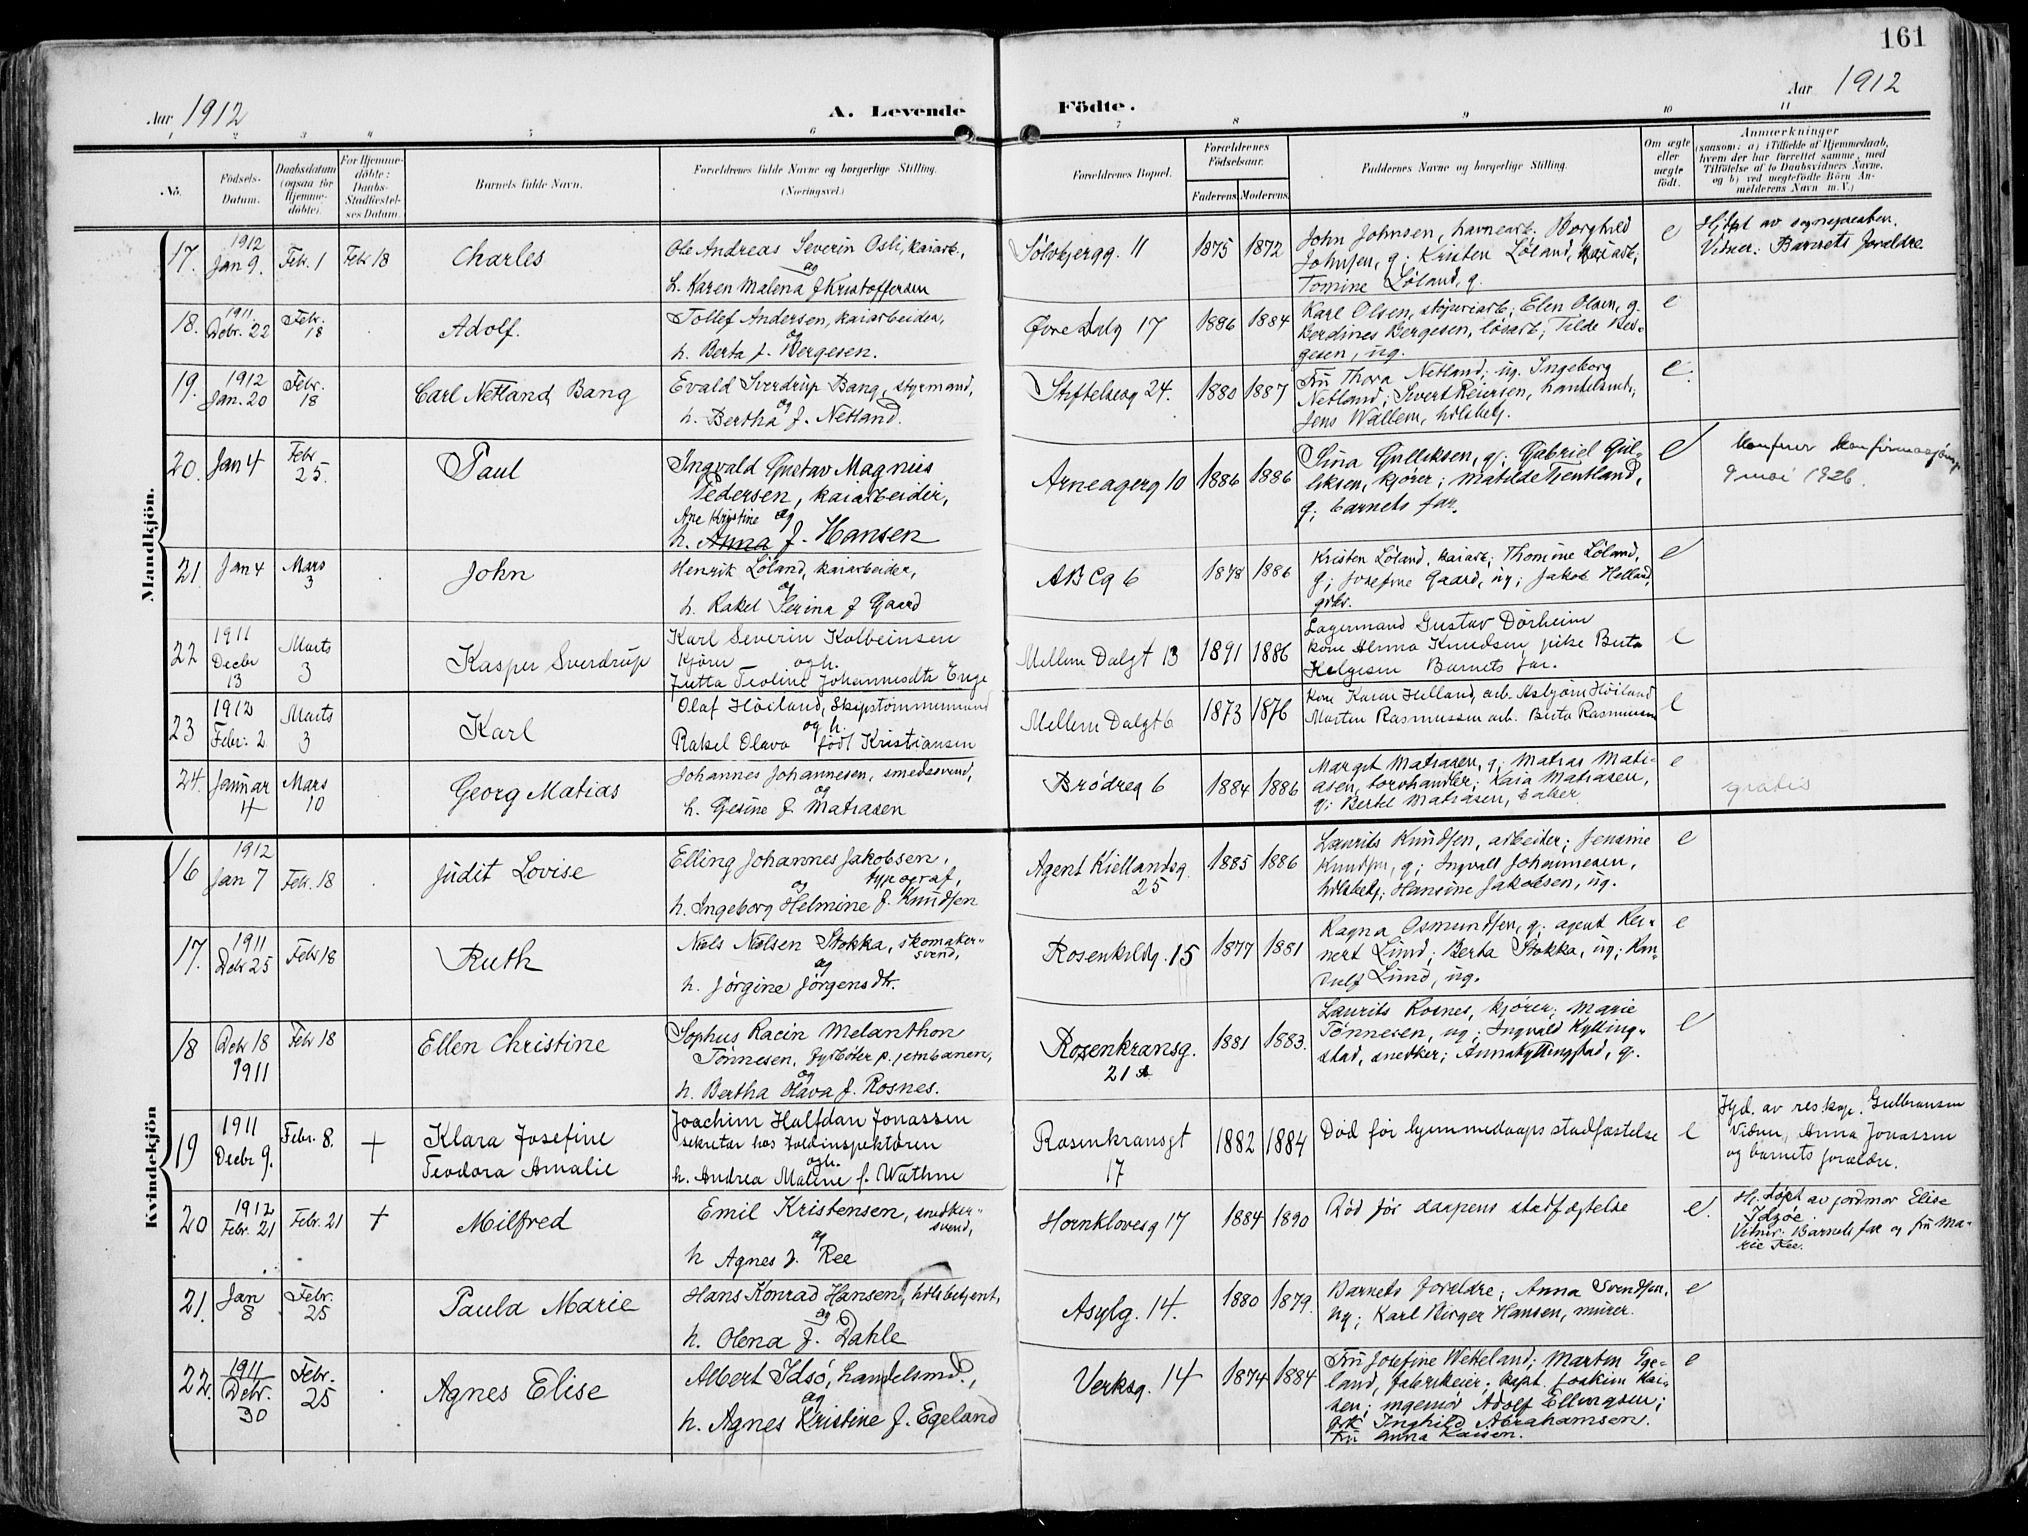 161
Aar 1912
A. Levende
Födte.
Aar 1912
1 2 3 4 5 6 7 8 9 10 11
No.
Födsels-
Datum.
Daabsdatum
(ogsaa for
Hjemme-
döbte).
For Hjemme-
döbte:
Daabs-
Stadfæstel-
ses Datum.
Barnets fulde Navn.
Forældrenes fulde Navne og borgerlige Stilling.
(Næringsvei.)
Forældrenes Bopæl.
Forældrenes
Födselsaar.
Faderens. Moderens.
Faddernes Navne og borgerlige Stilling.
Om ægte
eller
uægte
födt.
Anmærkninger
(saasom: a) i Tilfælde af Hjemmedaab,
hvem der har forrettet samme, med
Tilföielse af to Daabsvidners Navne,
og b) ved uegtefödte Börn An-
melderens Navn m. V.)
Mandkjön.
17. 1912 Jan 9. Febr. 1 Febr 18 Charles
Ole Andreas Severin Osli, kaiarb.,
og
h. Karen Malena f. Kristoffersen
Sølvbjergg. 11 1875 1872
John Johnsen, havnearb. Borghild
Johnsen, g; Kristen Løland, kaiarb;
Tomine Løland, g.
e
Hj.døpt av sognepresten.
Vidner: Barnets foreldre
18. 1911 Decbr. 22 Febr. 18 Adolf.
Tollef Andersen, kaiarbeider,
og
h. Berta f. Bergesen.
Øvre Dalg 17 1886 1884
Karl Olsen, støperiarb; Elen Olsen, g.
Berdines Bergesen, løsarb; Tilde Ber-
gesen, ug.
e
19. 1912 Jan. 20 Febr. 18 Carl Netland Bang
Evald Sverdrup Bang, styrmand,
og
h. Bertha f. Netland.
Stiftelsesg 24. 1880 1887
Fru Thora Netland; ug. Ingeborg
Netland; Sivert Reiersen, handelsmd;
Jens Wallem, hdlsbetj.
e.
20. Jan 4 Febr 25. Paul
Ingvald Gustav Magnus
Pedersen, kaiarbeider,
Ane Kristine og
h. Anna f. Hansen
Arneagerg 10 1886 1886
Sina Gulliksen, g; Gabriel Gul-
liksen, kjører; Matilde Tjentland,
g; barnets far.
e
9 mai 1926.
21. Jan 4 Mars 3 John
Henrik Løland, kaiarbeider,
og
h. Rakel Serina f Gaard
ABCg 6 1878 1886
Kristen Løland, kaiarb; Thomine Løland,
g; Josefine Gaard, ug; Jakob Helland,
e
22 1911 Decbr 13 Marts 3 Kasper Sverdrup
Karl Severin Kolbeinsen
kjører og h.
Jutta Teoline Johannesdtr Enge
Mellem Dalgt 13 1891 1886
Lagermand Gustav Dørheim
kone Anna Knudsen pike Berta
Helgesen Barnets far.
e
23 1912 Febr. 2 Marts 3 Karl
Olaf Høiland, Skipstømmermand
og h.
Rakel Olava født Kristiansen
Mellem Dalgt 6 1873 1876
Kone Karen Helland, arb. Asbjørn Høiland
Morten Rasmussen arb. Berta Rasmussen
e
24. Januar 4 Mars 10 Georg Matias
Johannes Johannesen, smedssvend,
og
h. Gesine f. Matiasen
Brødreg 6 1884 1886
Margit Matiasen, g; Matias Mati-
asen, torvhandler; Kaia Matiasen,
g; Bertel Matiasen, baker
e
gratis
Kvindekjön
16 1912 Jan 7 Febr. 18 Judit Lovise
Elling Johannes Jakobsen,
typograf,
og
h. Ingeborg Helmine f. Knudsen
Agent Kiellandsg.
25
1885 1886
Laurits Knudsen, arbeider; Jensine
Knudsen, g; Ingvald Johannesen,
hdlsbetj; Hansine Jakobsen, ug.
e
17. 1911 Decbr 25 Febr 18 Ruth
Niels Nielsen Stokka, skomaker-
svend,
og
h. Jørgine Jørgensdtr.
Rosenkildg. 15 1877 1881
Ragna Osmundsen, g; agent Rei-
nert Lund; Berta Stokka, ug; Ran-
dulf Lund, ug.
e
18 Decbr 18 1911 Febr 18 Ellen Christine
Sophus Racin Melanthon
Tønnesen, fyrbøter p. jernbanen,
og
h. Bertha Olava f. Rosnes.
Rosenkransg.
21 A
1881 1883.
Laurits Rosnes, kjører; Marie
Tønnesen, ug; Ingvald Kylling-
stad, snedker; Anna Kyllingstad, g.
e
19 1911 Decbr 9. Febr. 8. + Klara Josefine
Teodora Amalie
Joachim Halfdan Jonassen
sekretær hos toldinspektøren
og h.
h. Andrea Maline f. Wathne
Rosenkransgt
17
1882 1884
Død før hjemmedaaps stadfæstelse
e
Hjd. av res kap. Gulbransen
Vidner, Anna Jonassen
og barnets forældre.
20 1912 Febr. 21 Febr. 21 + Milfred
Emil Kristensen, snedker-
svend,
og
h Agnes f. Ree
Hornklovesg 17 1884 1890
Død før daapens stadfæstelse
e.
Hj. døpt av jordmor Elise
Idsøe.
Vitner: Barnets far og fru Ma-
rie Ree.
21. Jan 8 Febr. 25 Paula Marie
Hans Konrad Hansen, hdlsbetjent,
og
h. Olena f. Dahle
Asylg. 14. 1880 1879.
Barnets foreldre; Anna Svendsen,
ug; Karl Birger Hansen, murer.
e
22. 1911 Decbr. 30 Febr. 25 Agnes Elise
Albert Idsø, handelsmd.,
og
h. Agnes Kristine f. Egeland
Verksg. 14 1874 1884
Fru Josefine Wetteland; Martin Ege-
land, fabrikeier. kapt Joakim Kai-
sen; ingeniør Adolf Ellingsen;
frk Inghild Abrahamsen.
Fru Anna Kaisen.
e